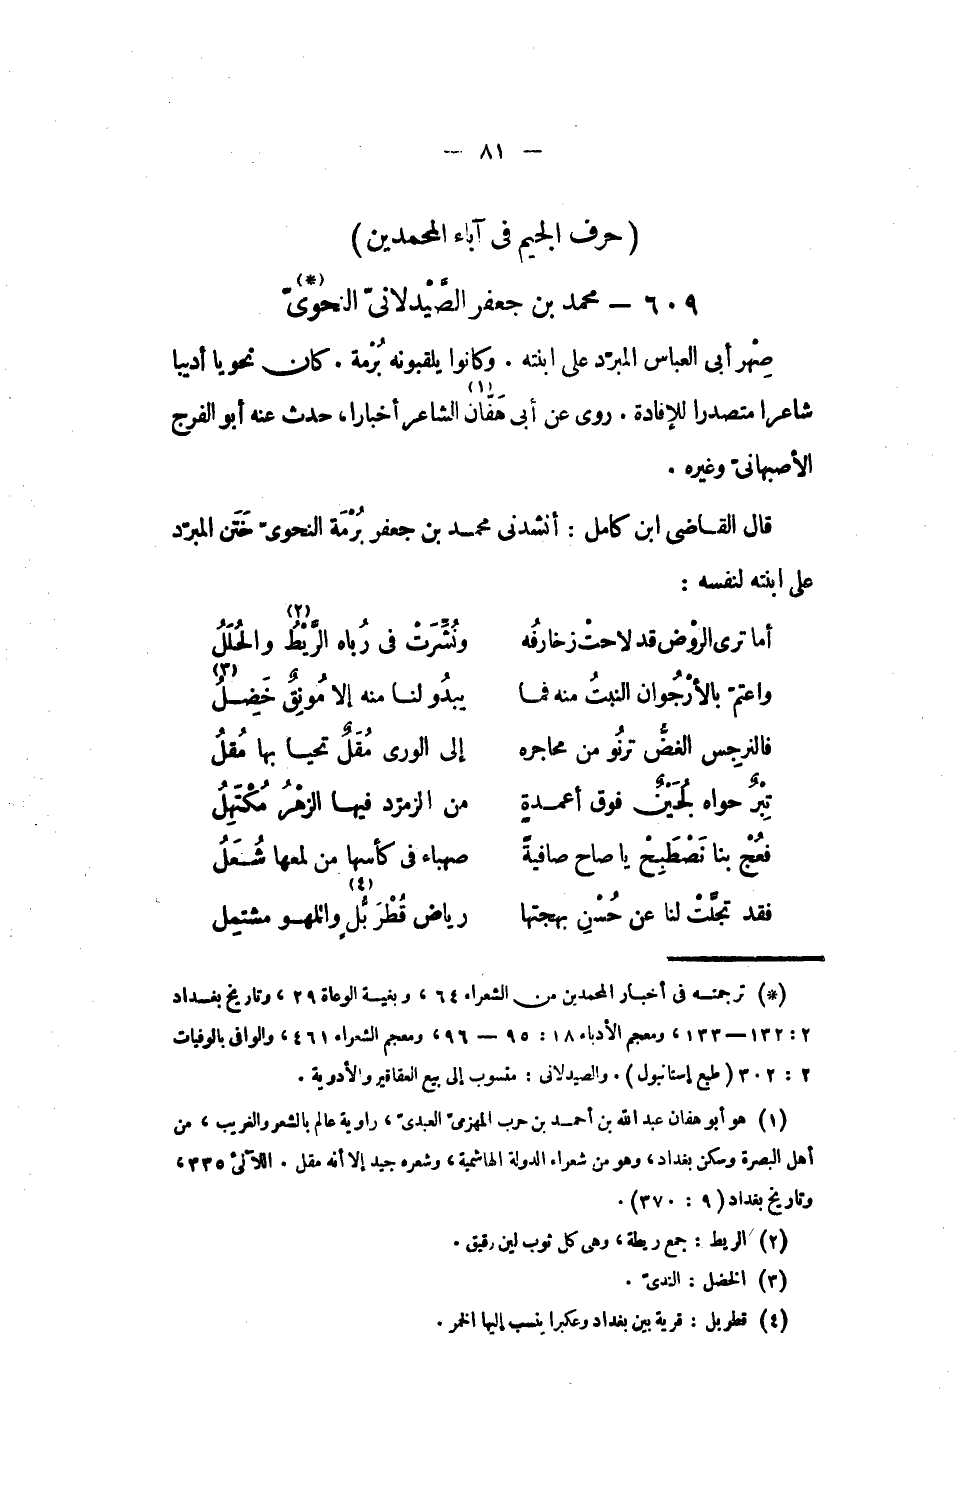 — ٨١ —
( حرف الجيم فى آباء المحمدين )
٦٠٩ — محمد بن جعفر الصَّيْدلانىّ النحوىّ (*)
صِهْر أبى العباس المبرّد على ابنته . وكانوا يلقبونه بُرْمة . كان نحويا أديبا
شاعرا متصدرا للإفادة . روى عن أبى هَفَّان (١) الشاعر أخبارا، حدث عنه أبو الفرج
الأصبهانىّ وغيره .
قال القاضى ابن كامل : أنشدنى محمد بن جعفر بُرْمَة النحوىّ خَتَن المبرّد
على ابنته لنفسه :
أما ترى الروْض قد لاحتْ زخارفُه ونُشِّرَتْ فى رُباه الرَّيْطُ (٢) والحُلَلُ
واعتمّ بالأُرْجُوان النبتُ منه فما يبدُو لنا منه إلا مُونِقٌ خَضِلُ (٣)
فالنرجِس الغضُّ ترنُو من محاجره إلى الورى مُقَلٌ تحيا بها مُقلُ
تِبْرٌ حواه لُجَيْنٌ فوق أعمدةٍ من الزمرّد فيها الزهْرُ مُكْتَهِلُ
فعُجْ بنا نَصْطَبِحْ يا صاح صافيةً صهباء فى كأسها من لمعها شُعَلُ
فقد تجلَّتْ لنا عن حُسْنِ بهجتها رياض قُطْرَ بُّلٍ (٤) واللهو مشتمِل
(*) ترجمته فى أخبار المحمدين من الشعراء ٦٤ ، وبغية الوعاة ٢٩ ، وتاريخ بغداد
٢ : ١٣٢ — ١٣٣ ، ومعجم الأدباء ١٨ : ٩٥ — ٩٦ ، ومعجم الشعراء ٤٦١ ، والوافى بالوفيات
٢ : ٣٠٢ ( طبع إستانبول ) . والصيدلانى : منسوب إلى بيع العقاقير والأدوية .
(١) هو أبو هفان عبد الله بن أحمد بن حرب المهزمىّ العبدىّ ، راوية عالم بالشعر والغريب ، من
أهل البصرة وسكن بغداد ، وهو من شعراء الدولة الهاشمية ، وشعره جيد إلا أنه مقل . اللآلئ ٣٣٥ ،
وتاريخ بغداد ( ٩ : ٣٧٠ ) .
(٢) الريط : جمع ريطة ، وهى كل ثوب لين رقيق .
(٣) الخضل : الندىّ .
(٤) قطربل : قرية بين بغداد وعكبرا ينسب إليها الخمر .